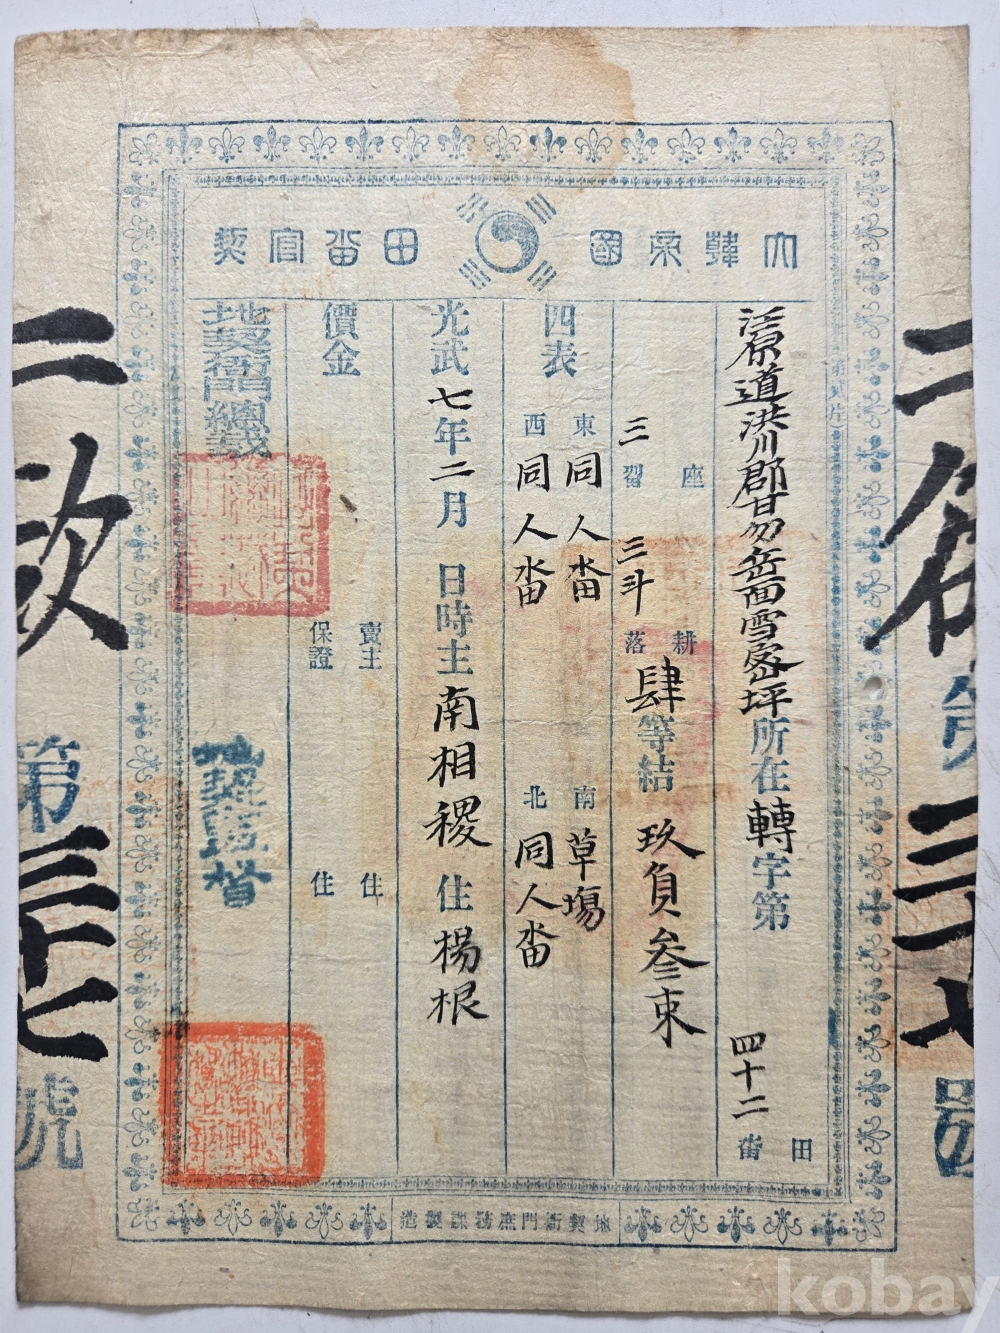 大韓帝國 田畓官契
江原道洪川郡甘勿岳面雪
坪所在轉字第四十二 田畓
座 三畓
三斗 耕落 肆等結玖負參束
四表 東同人畓 南草場
西同人畓 北同人畓
光武七年二月 日時主南相稷 住楊根
價金 賣主 住
保證 住
地契衙門總裁
地契監督
地契衙門庶務課製造
第三十七號
kobay